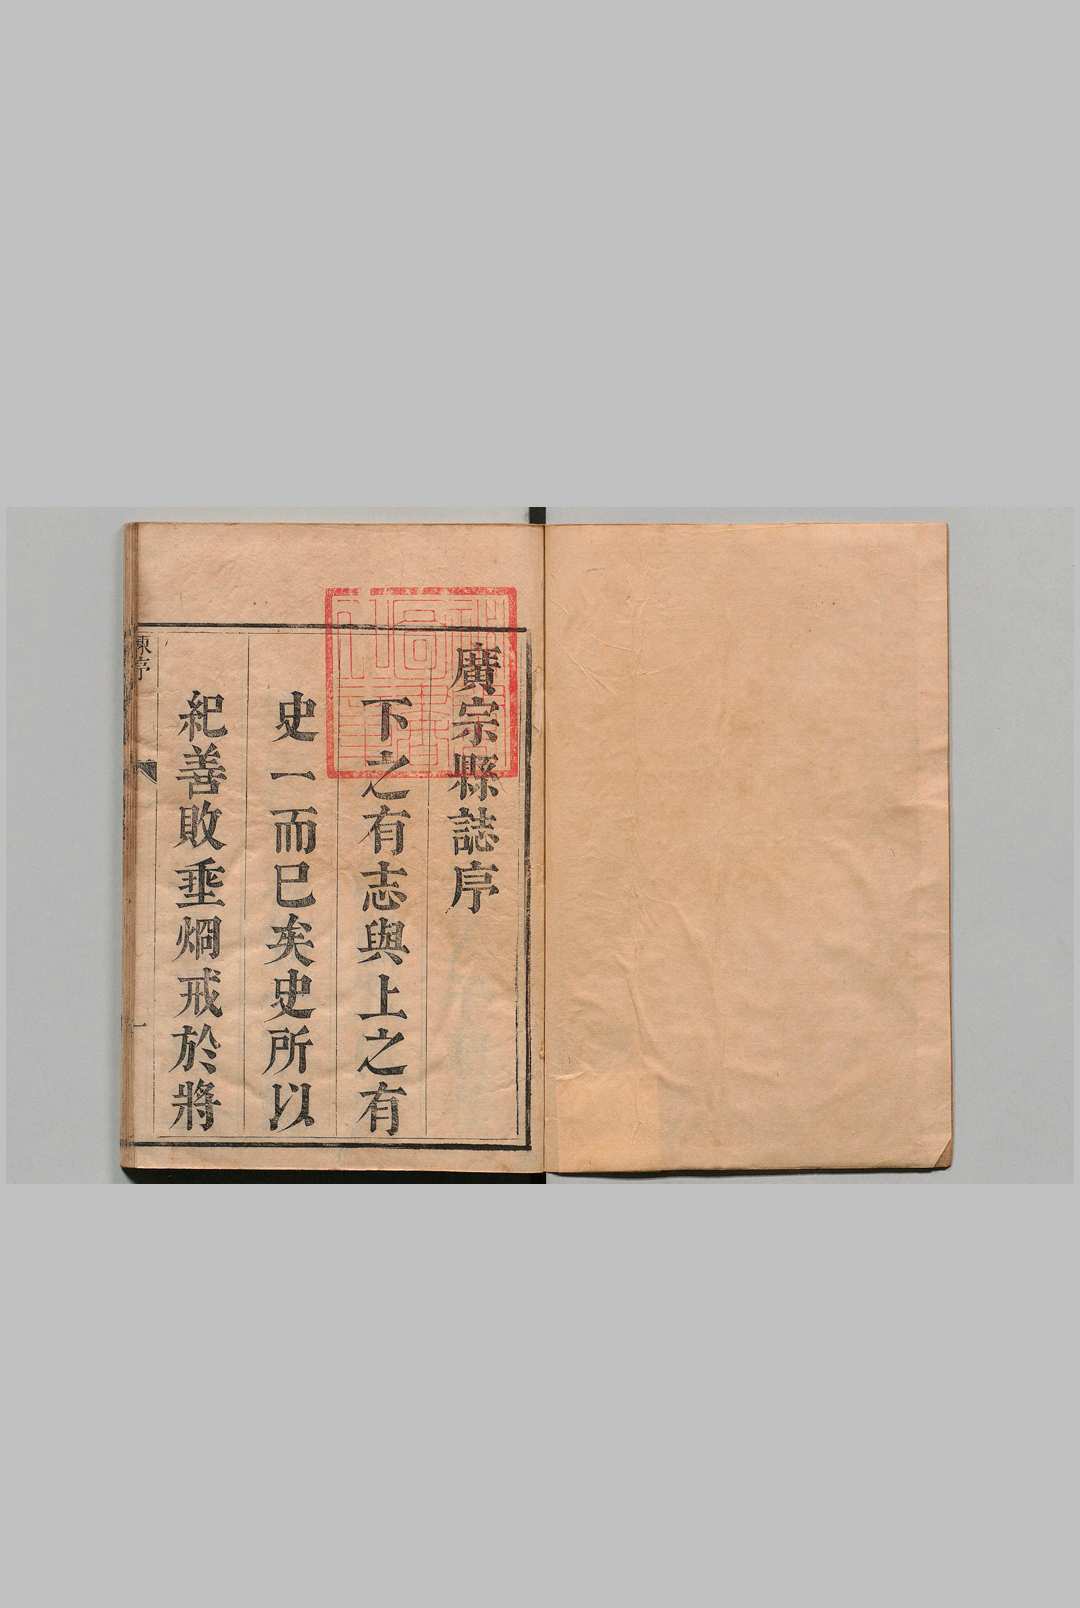 廣宗縣誌序
下之有志與上之有
史一而已矣史所以
紀善敗垂烱戒於將
序
一